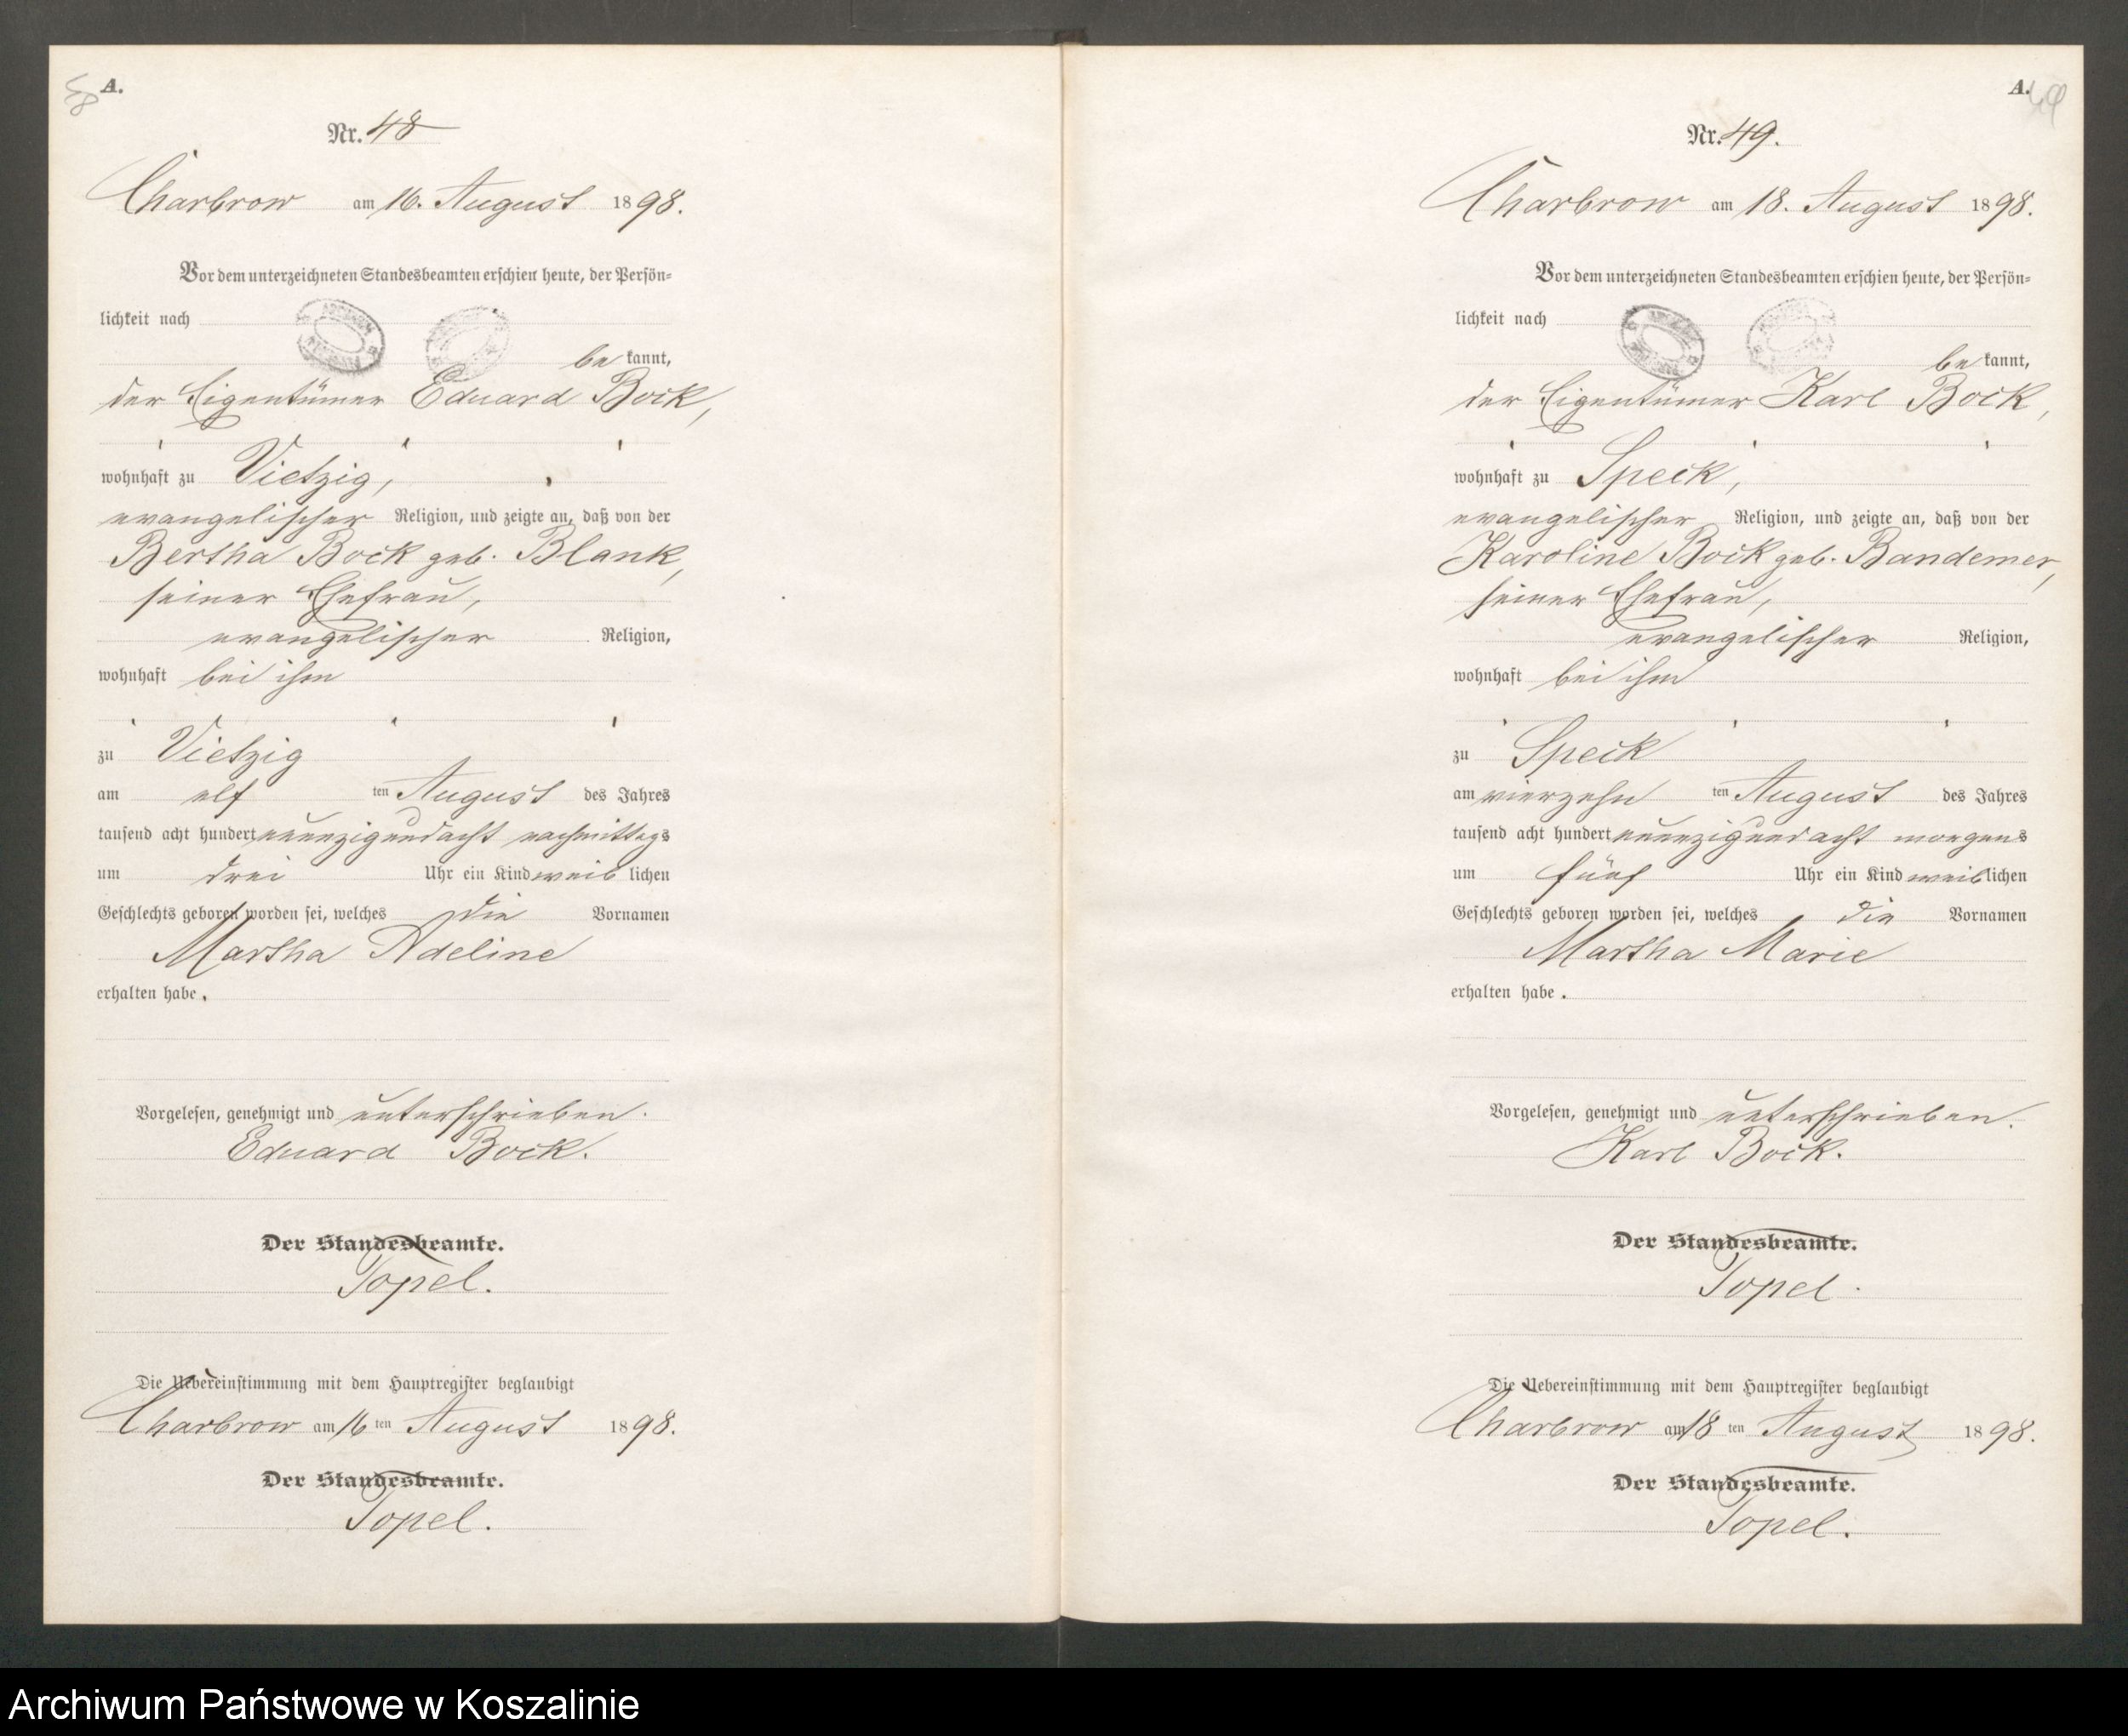 A.
Nr. 48
Charbrow am 16. August 1898.
Vor dem unterzeichneten Standesbeamten erschien heute, der Persön-
lichkeit nach
be kannt,
der Eigentümer Eduard Bock,
wohnhaft zu Vietzig,
evangelischer Religion, und zeigte an, daß von der
Bertha Bock geb. Blank,
seiner Ehefrau,
evangelischer Religion,
wohnhaft bei ihm
zu Vietzig
am elf ten August des Jahres
tausend acht hundert neunzigundacht nachmittags
um drei Uhr ein Kind weib lichen
Geschlechts geboren worden sei, welches die Vornamen
Martha Adeline
erhalten habe.
Vorgelesen, genehmigt und unterschrieben.
Eduard Bock.
Der Standesbeamte.
Topel.
Die Uebereinstimmung mit dem Hauptregister beglaubigt
Charbrow am 16 ten August 1898.
Der Standesbeamte.
Topel.
A.
49
Nr. 49.
Charbrow am 18. August 1898.
Vor dem unterzeichneten Standesbeamten erschien heute, der Persön-
lichkeit nach
be kannt,
der Eigentümer Karl Bock,
wohnhaft zu Speck,
evangelischer Religion, und zeigte an, daß von der
Karoline Bock geb. Bandemer,
seiner Ehefrau,
evangelischer Religion,
wohnhaft bei ihm
zu Speck
am vierzehn ten August des Jahres
tausend acht hundert neunzigundacht morgens
um fünf Uhr ein Kind weib lichen
Geschlechts geboren worden sei, welches die Vornamen
Martha Marie
erhalten habe.
Vorgelesen, genehmigt und unterschrieben.
Karl Bock.
Der Standesbeamte.
Topel.
Die Uebereinstimmung mit dem Hauptregister beglaubigt
Charbrow am 18 ten August 1898.
Der Standesbeamte.
Topel.
Archiwum Państwowe w Koszalinie